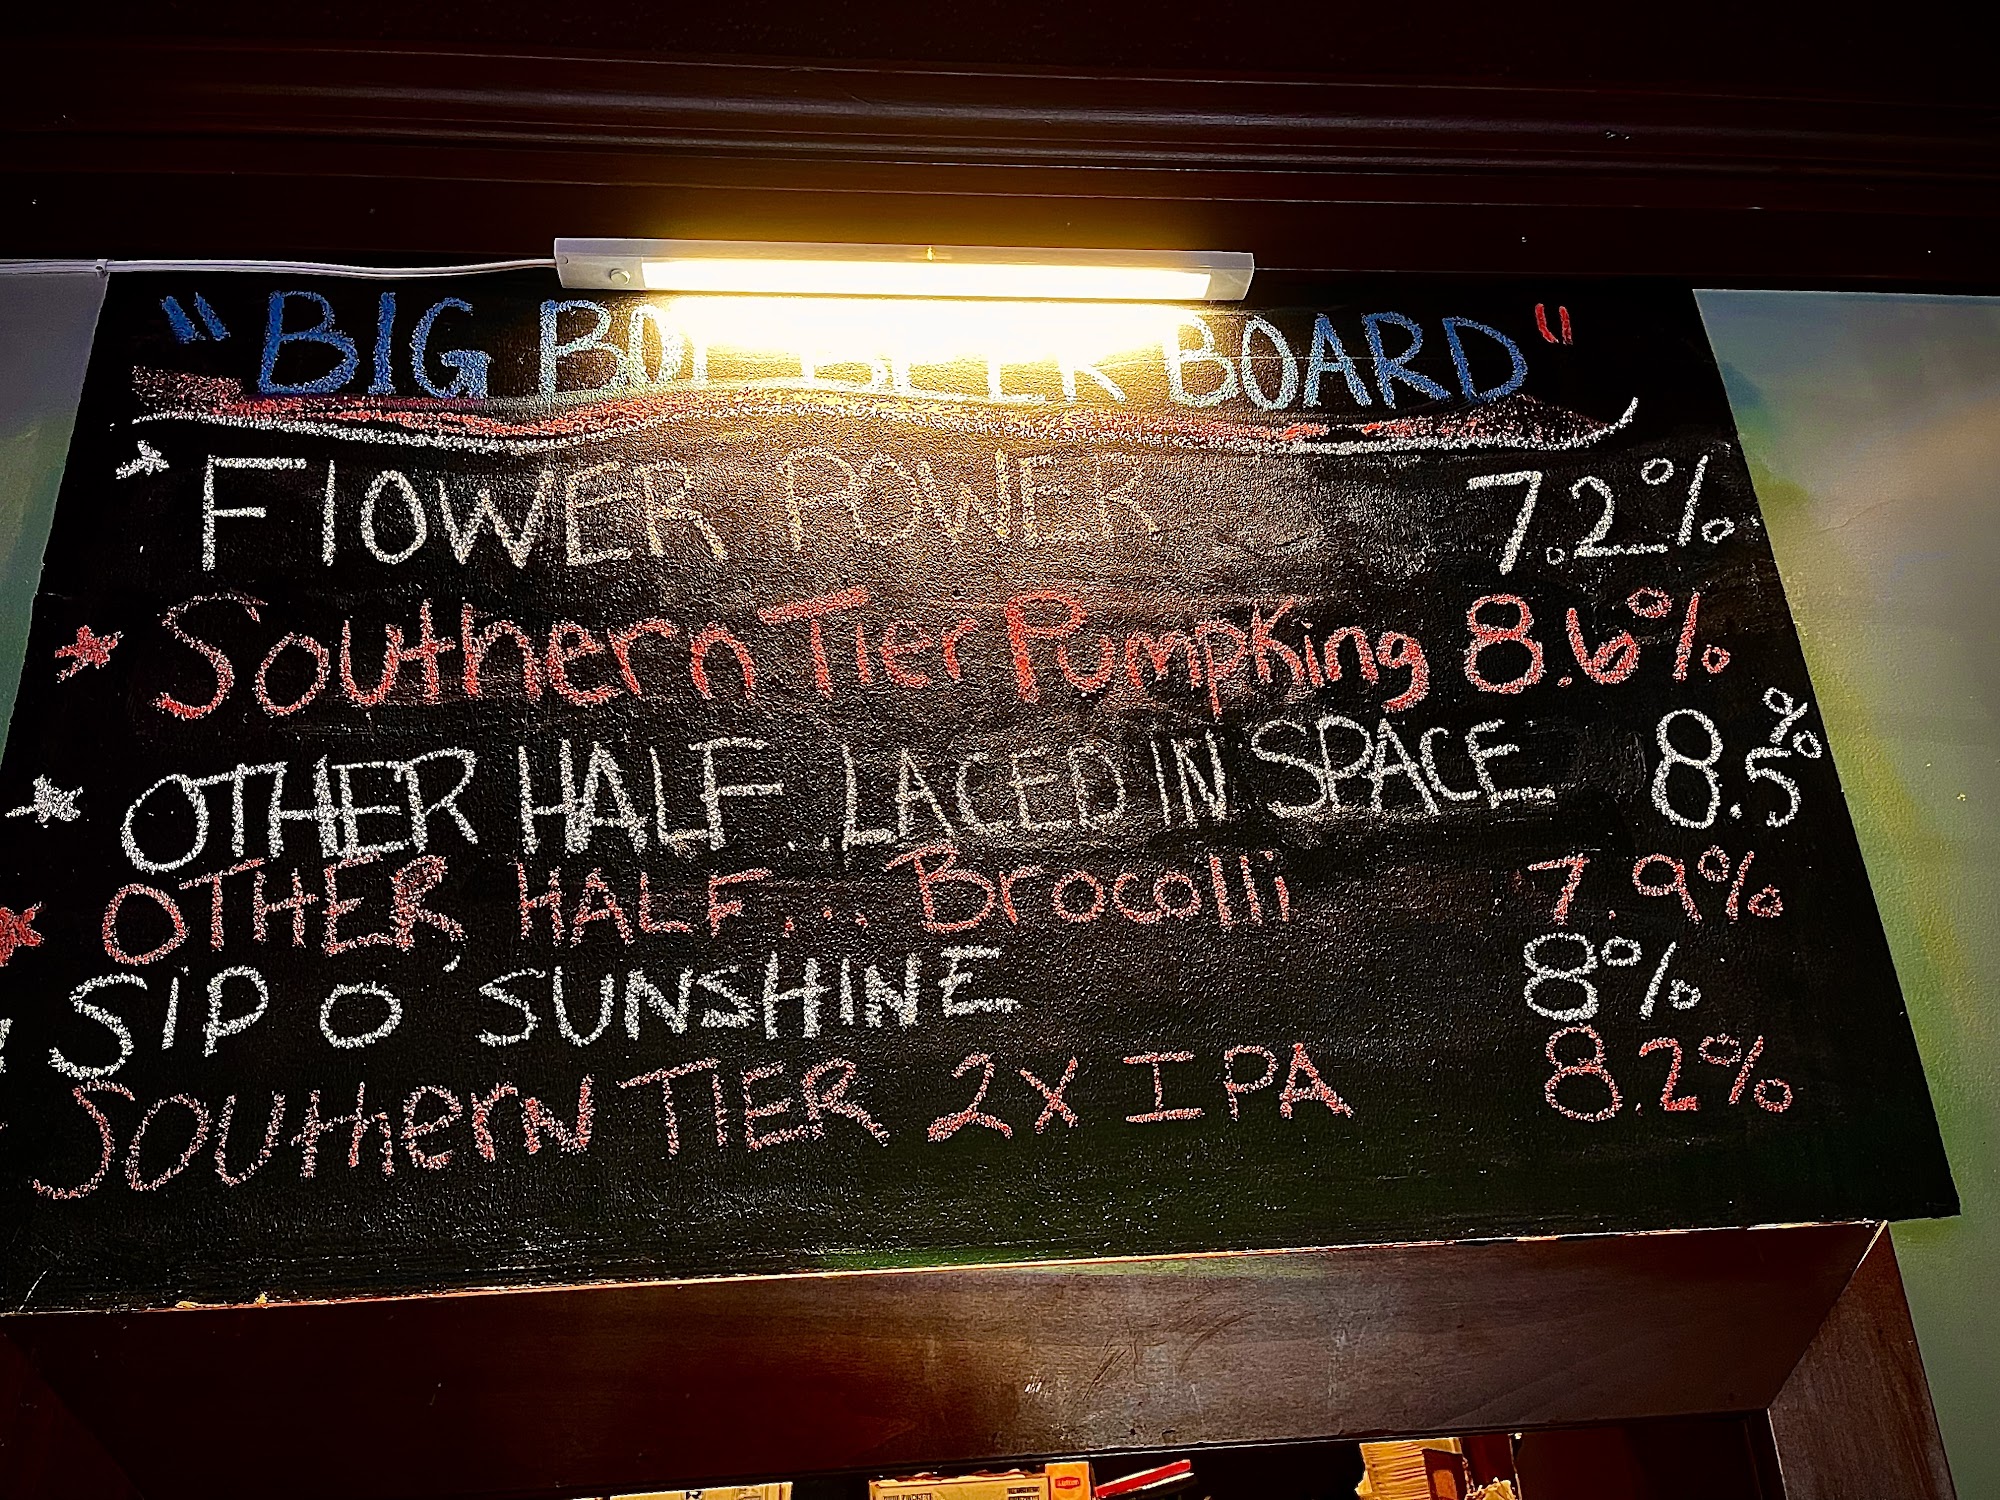 "BIG BOI BEER BOARD"
* FlOWER POWER 7.2%
* Southern Tier PumpKing 8.6%
* OTHER HALF ... LACED IN SPACE 8.5%
* OTHER HALF... Brocolli 7.9%
SIP O' SUNSHINE 8%
SOUthern TIER 2X IPA 8.2%